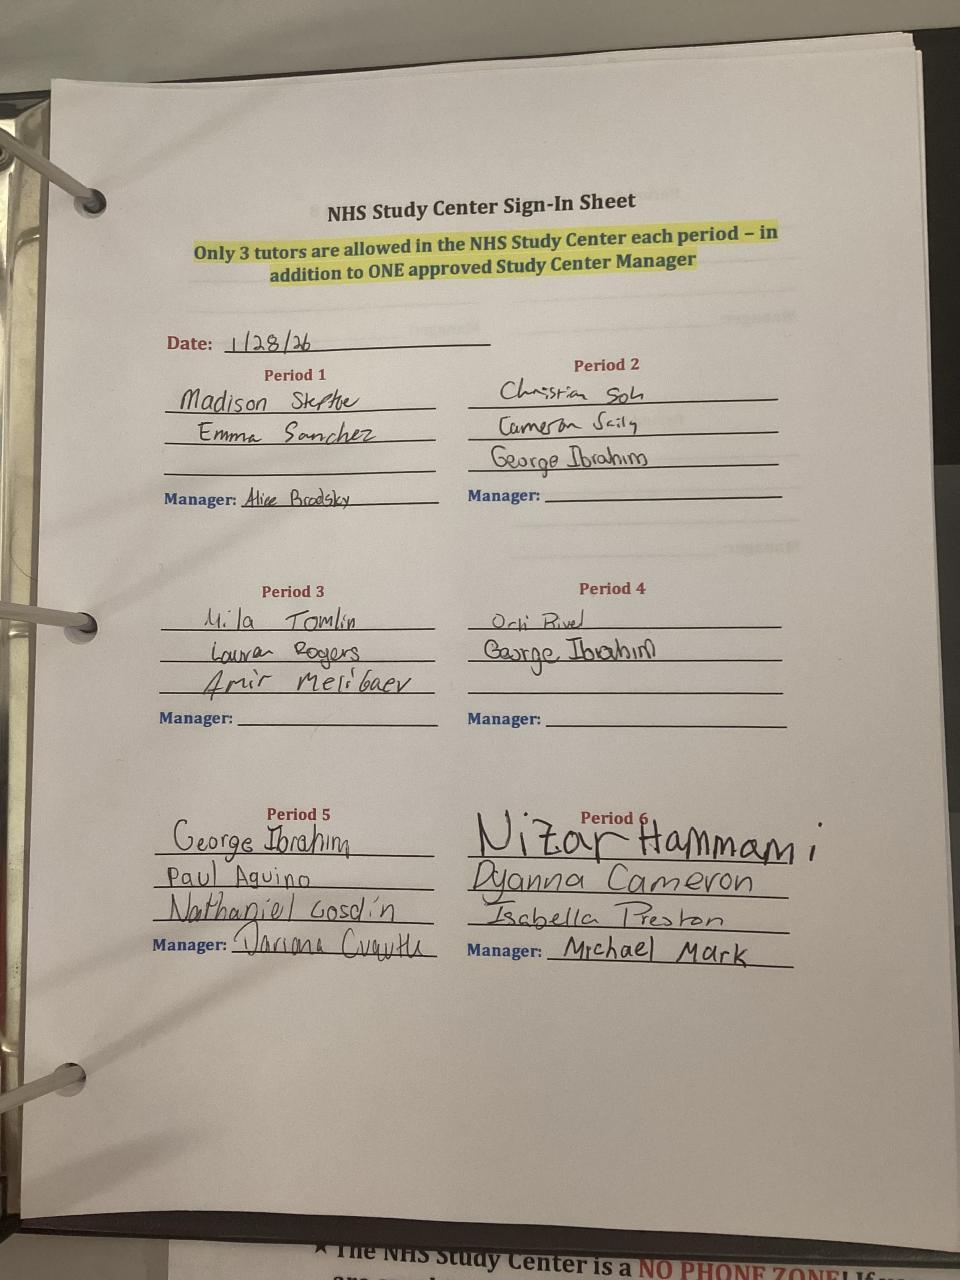 NHS Study Center Sign-In Sheet
Only 3 tutors are allowed in the NHS Study Center each period – in
addition to ONE approved Study Center Manager
Date: 1/28/26
Period 1
Madison Steptoe
Emma Sanchez
Manager: Alice Brodsky
Period 2
Christian Soh
Cameron
George Ibrahim
Manager:
Period 3
Mila Tomlin
Lauren Rogers
Amir Melibaev
Manager:
Period 4
George Ibrahim
Manager:
Period 5
George Ibrahim
Paul Aquino
Nathaniel Gosdin
Manager: Dariana
Period 6
Nizar Hammami
Dyanna Cameron
Isabella Preston
Manager: Michael Mark
★ The NHS Study Center is a NO PHONE ZONE! If